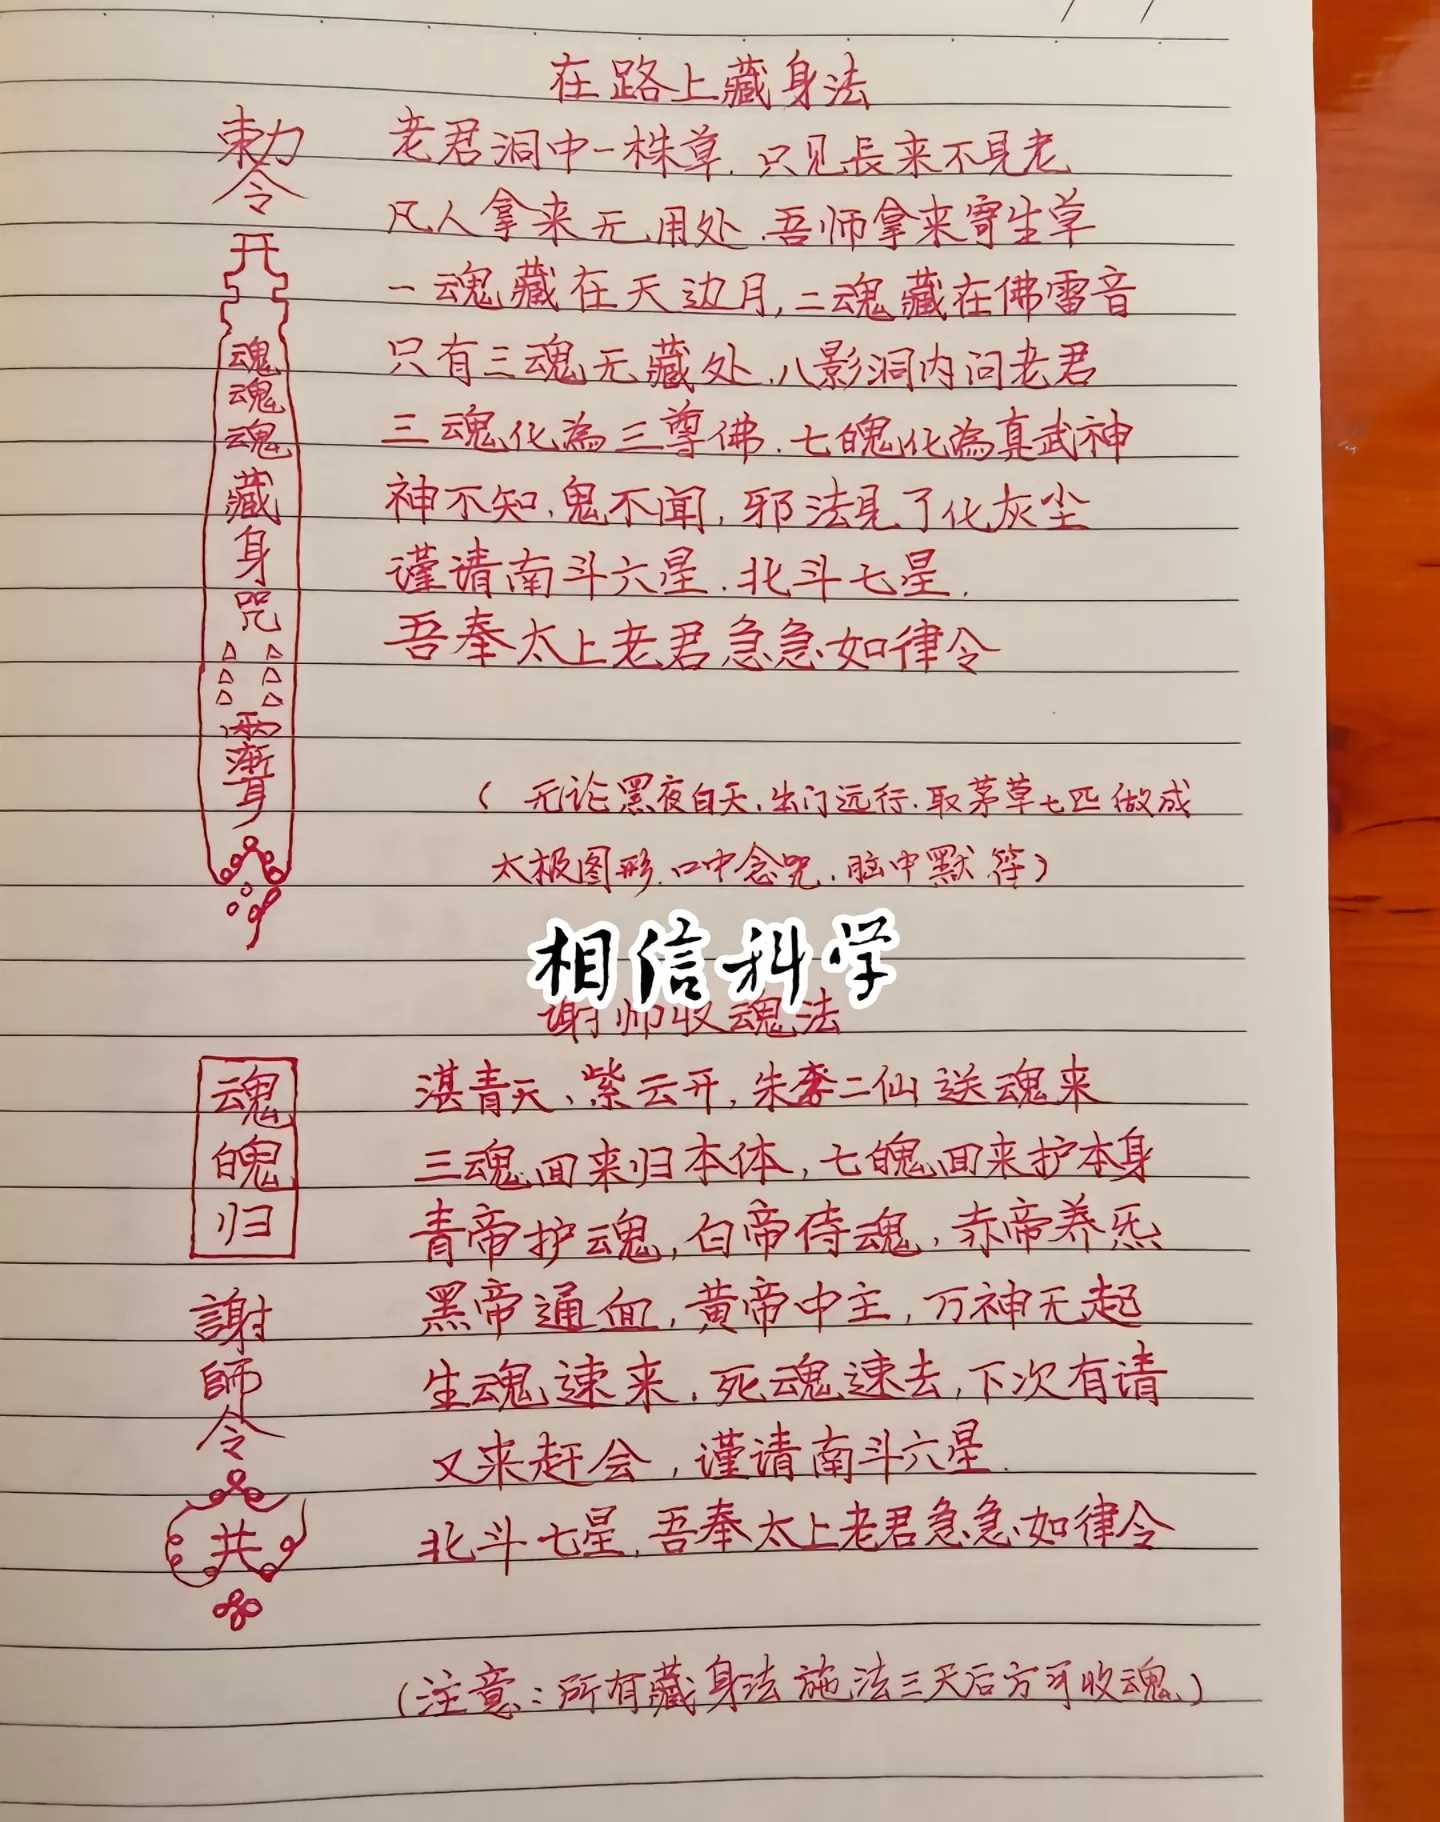 在路上藏身法
敕令
开
魂
魂
魂
藏
身
咒
老君洞中一株草.只见長来不見老
凡人拿来无用处.吾师拿来寄生草
一魂藏在天边月,二魂藏在佛雷音
只有三魂无藏处.八影洞内问老君
三魂化為三尊佛.七魄化為真武神
神不知、鬼不闻,邪法見了化灰尘
谨请南斗六星.北斗七星.
吾奉太上老君急急如律令
(无论黑夜白天.出门远行.取茅草七匹做成
太极图形.口中念咒.脑中默符)
相信科学
谢师收魂法
魂
魄
归
謝
師
令
共
湛青天、紫云开,朱李二仙送魂来
三魂回来归本体,七魄回来护本身
青帝护魂,白帝侍魂,赤帝养炁
黑帝通血,黄帝中主,万神无起
生魂速来.死魂速去,下次有请
又来赶会,谨请南斗六星.
北斗七星,吾奉太上老君急急如律令
(注意:所有藏身法施法三天后方可收魂)